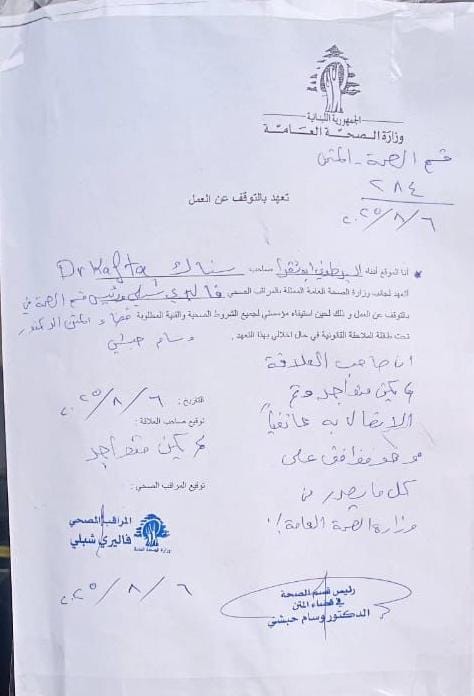 الجمهورية اللبنانية
وزارة الصحة العامة
قسم الصحة - المتن
٢٨٤
٢٠٢٥/٨/٦
تعهد بالتوقف عن العمل
أنا الموقع أدناه صاحب سناك Dr Kafta
أتعهد لجانب وزارة الصحة العامة الممثلة بالمراقب الصحي فاليري شبلي ورئيس قسم الصحة في
بالتوقف عن العمل و ذلك لحين استيفاء مؤسستي لجميع الشروط الصحية والفنية المطلوبة قضاء المتن الدكتور
تحت طائلة الملاحقة القانونية في حال اخلالي بهذا التعهد . وسام حبشي
ان صاحب العلاقة
لم يكن متواجد وتم
الاتصال به هاتفياً
وهو موافق على
كل ما يصدر من
وزارة الصحة العامة
التاريخ : ٢٠٢٥/٨/٦
توقيع صاحب العلاقة :
لم يكن متواجد
توقيع المراقب الصحي :
المراقب الصحي
فاليري شبلي
وزارة الصحة العامة
٢٠٢٥/٨/٦
رئيس قسم الصحة
في قضاء المتن
الدكتور وسام حبشي